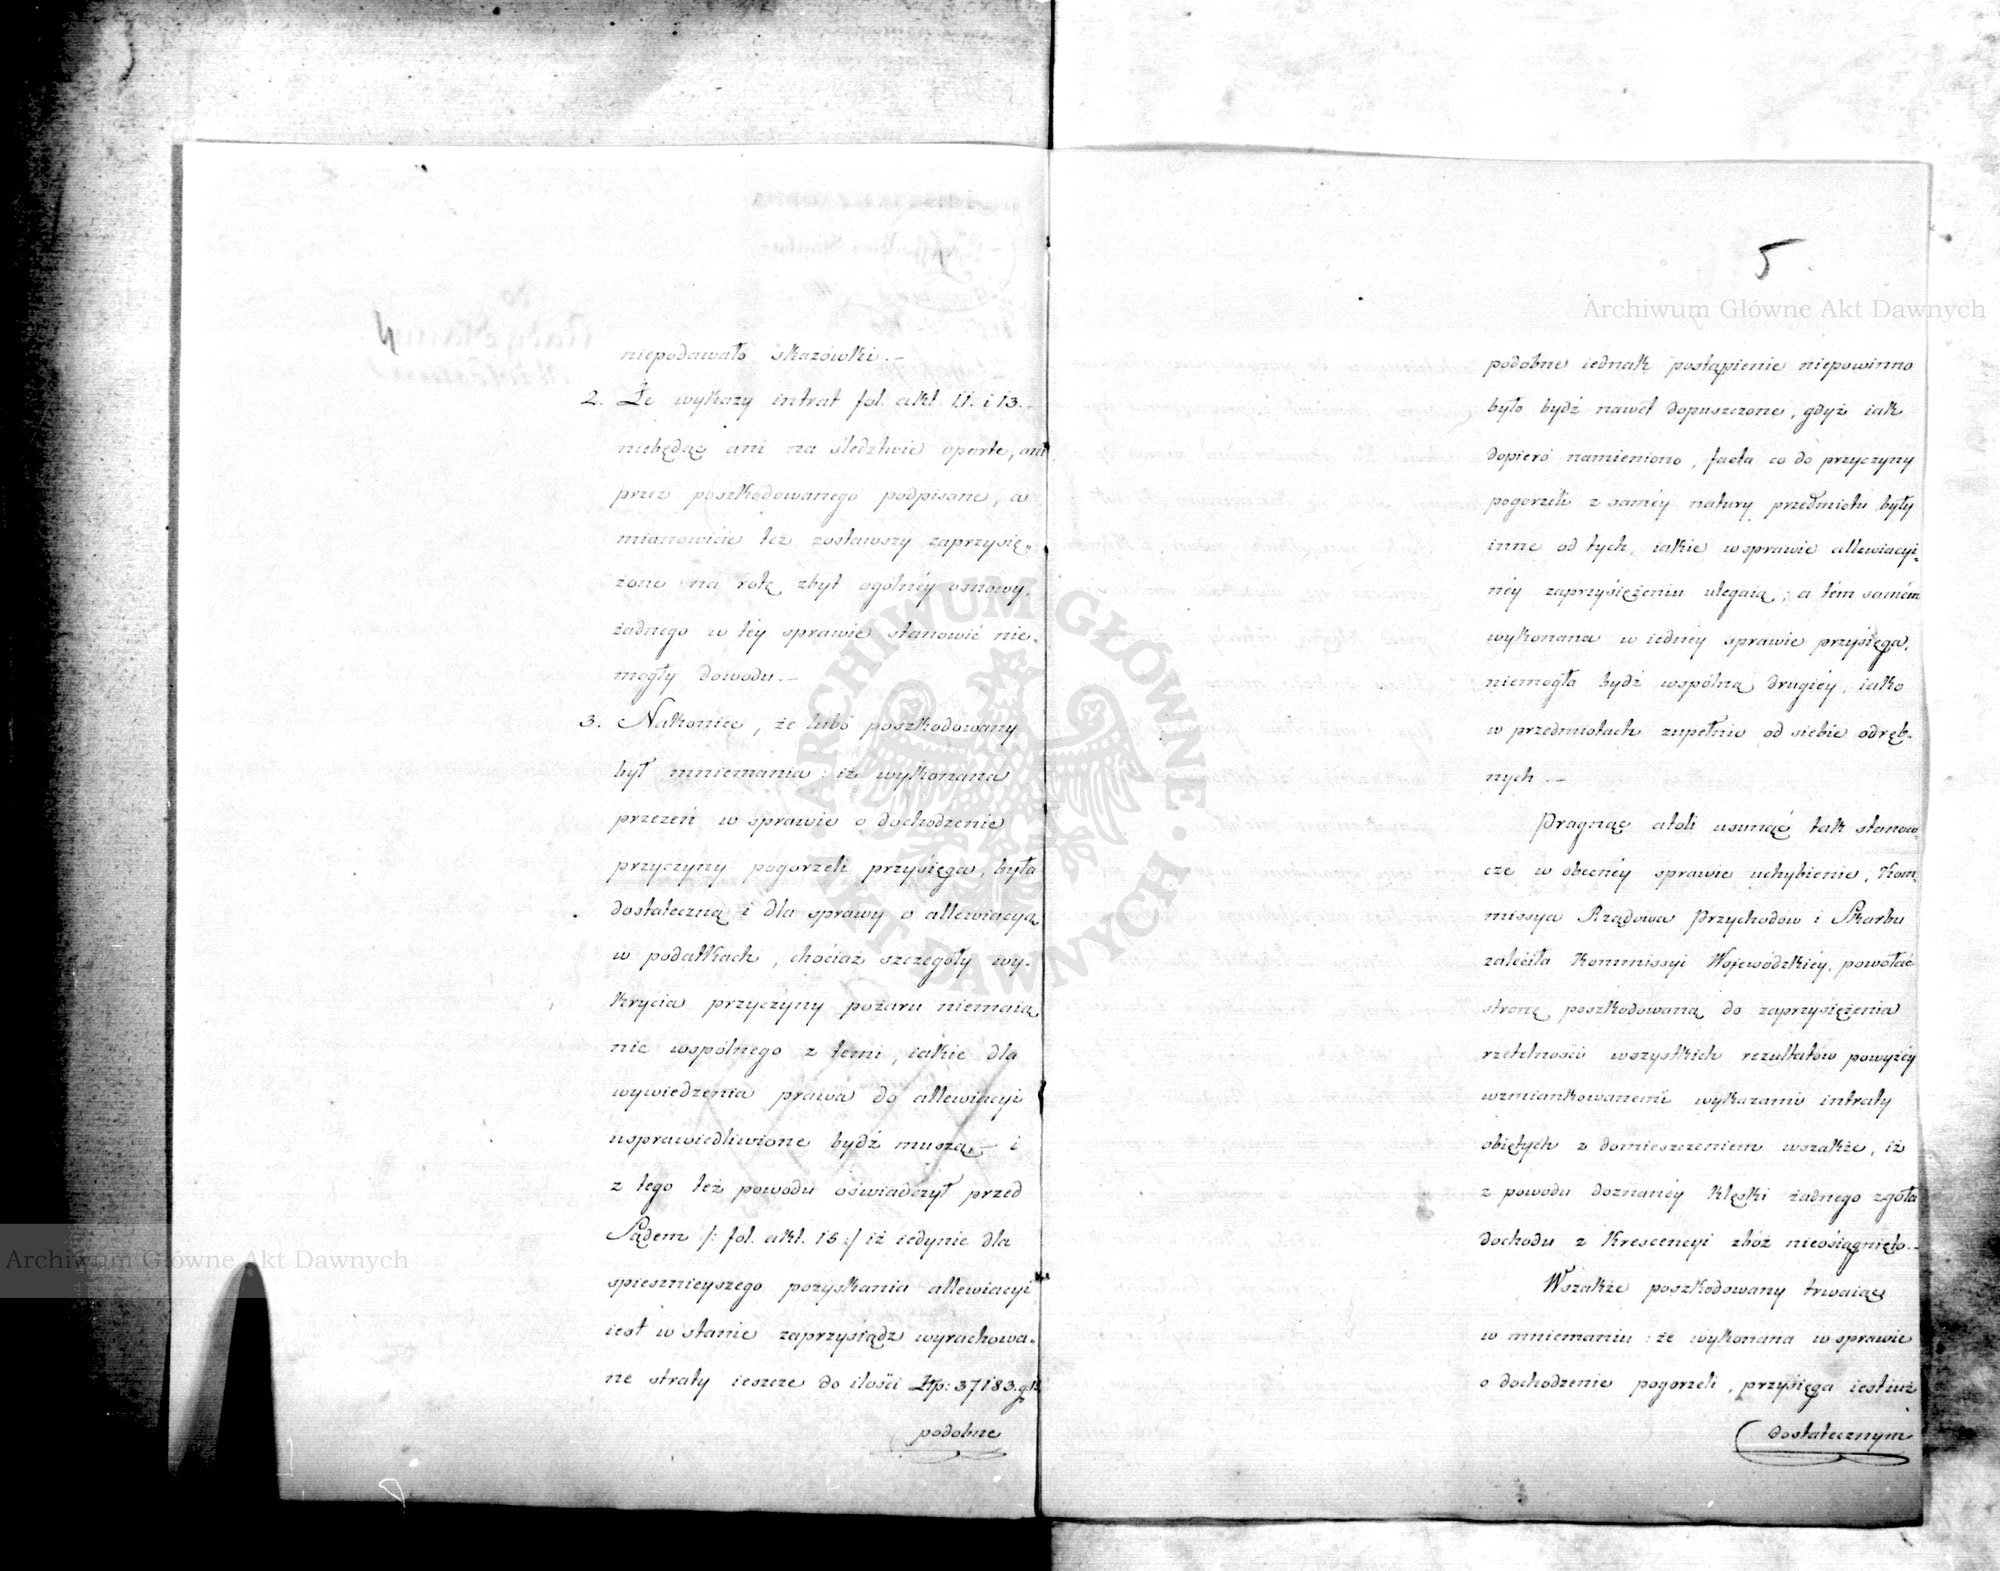 4
niepodawało skazówki. –
2. Że wykazy intrat fol. akt. 11. i 13.
niebędąc ani na śledztwie oparte, ani
przez poszkodowanego podpisane, a
mianowicie też zostawszy zaprzysię„
żone na rotę zbyt ogólnéy osnowy,
żadnego w téy sprawie stanowić nie„
mogły dowodu. –
3. Nakoniec, że lubo poszkodowany
był mniemania : iż wykonana
przezeń w sprawie o dochodzenie
przyczyny pogorzeli przysięga, była
dostateczną i dla sprawy o allewiacyą
w podatkach, chociaż szczegóły wy„
krycia przyczyny pożaru niemaią
nic wspólnego z temi, iakie dla
wywiedzenia prawa do allewiacyi
usprawiedliwione bydź muszą, – i
z tego też powodu oświadczył przed
Sądem /: fol. akt. 15 :/ iż iedynie dla
spiesznieyszego pozyskania allewiacyi
iest w stanie zaprzysiądz wyrachowa„
ne straty ieszcze do ilości Złp: 37183. g
podobne
5
podobne iednak postąpienie niepowinno
było bydź nawet dopuszczone, gdyż iak
dopiero namieniono, facta co do przyczyny
pogorzeli z saméy natury przedmiotu były
inne od tych, iakie w sprawie allewiacyi„
néy zaprzysiężeniu ulegaią ; a tém samém
wykonana w iedney sprawie przysięga,
niemogła bydź wspólną drugiéy, iako
w przedmiotach zupełnie od siebie odręb„
nych. –
Pragnąc atoli usunąć tak stanow„
cze w obecnéy sprawie uchybienie, Kom„
missya Rządowa Przychodów i Skarbu
zaleciła Kommissyi Wojewódzkiéy, powołać
stronę poszkodowaną do zaprzysiężenia
rzetelności wszystkich rezultatów powyżéy
wzmiankowanemi wykazami intraty
obiętych z domieszczeniem wszakże, iż
z powodu doznanéy klęski żadnego zgoła
dochodu z Krescencyi zbóż nieosiągnięto. –
Wszakże poszkodowany trwaiąc
w mniemaniu : że wykonana w sprawie
o dochodzenie pogorzeli, przysięga iest iuż
dostatecznym
Archiwum Główne Akt Dawnych
Archiwum Główne Akt Dawnych
ARCHIWUM GŁÓWNE AKT DAWNYCH